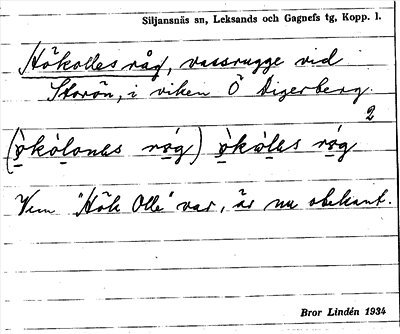 Siljansnäs sn, Leksands och Gagnefs tg, Kopp. l.
Hökolles råg, vassrugge vid
Storön, i viken Ö Digerberg.
2
Vem "Hök Olle" var, är nu obekant.
Bror Lindén 1934